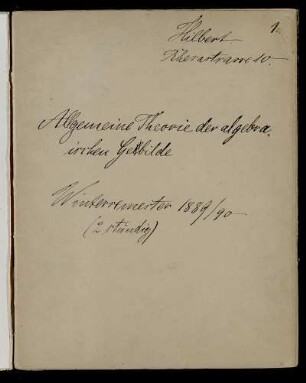 1.
Hilbert
10.
Allgemeine Theorie der algebra-
ischen Gebilde
Wintersemester 1889/90
(2 stündig)